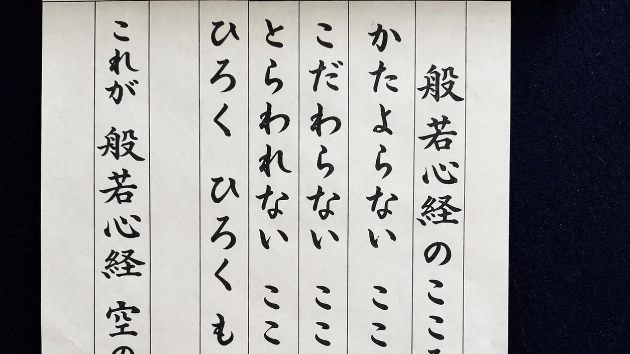 般若心経のここ
かたよらない ここ
こだわらない ここ
とらわれない ここ
ひろく ひろくも
これが 般若心経 空の